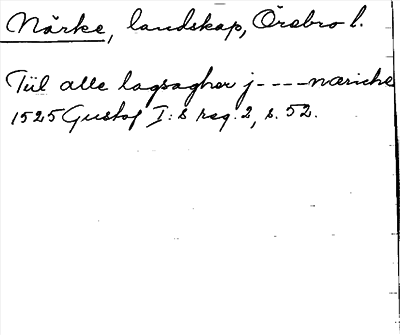 Närke, landskap, Örebro l.
Tiil alle lagsagher j----næriche
1525 Gustaf I:s reg. 2, s. 52.